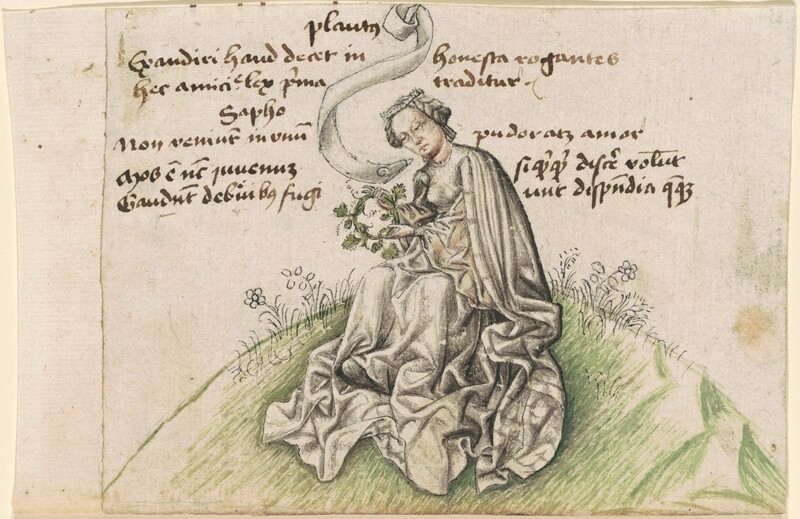 plautus
Exaudiri haud decet in honesta rogantes
hec amicicie lex prima traditur
Sapho
Non veniunt in unum pudor atque amor
Mos est nunc iuvenum si quicquid discere volunt
Gaudent debitibus fugiunt dispendia